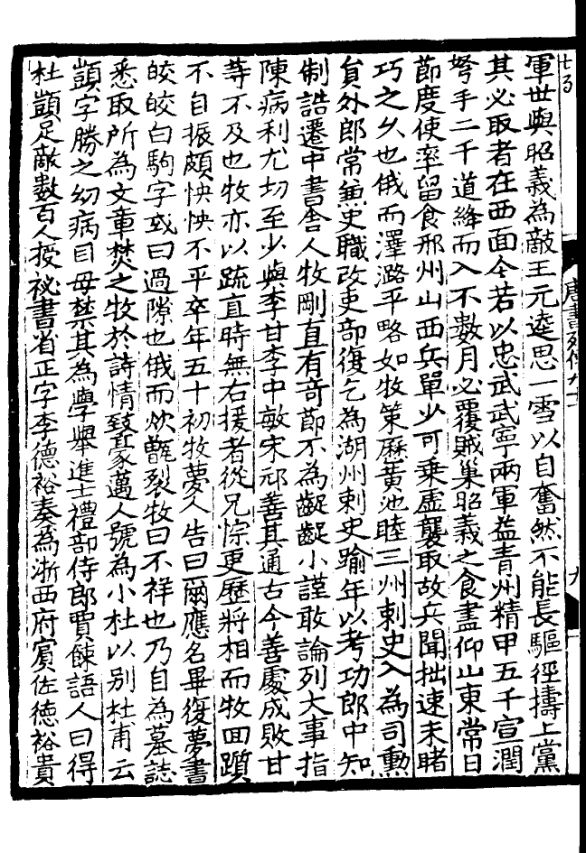 軍世與昭義為敵王元逵思一雪以自奮然不能長驅徑擣上黨
其必取者在西面今若以忠武武寧兩軍益青州精甲五千宣潤
弩手二千道絳而入不數月必覆賊巢昭義之食盡仰山東常日
節度使率留食邢州山西兵單少可乘虛襲取故兵聞拙速未睹
巧之久也俄而澤潞平略如牧策歷黃池睦三州刺史入為司勳
員外郎常兼史職改吏部復乞為湖州刺史踰年以考功郎中知
制誥遷中書舍人牧剛直有奇節不為齪齪小謹敢論列大事指
陳病利尤切至少與李甘李中敏宋邧善其通古今善處成敗甘
等不及也牧亦以疏直時無右援者從兄悰更歷將相而牧回躓
不自振頗怏怏不平卒年五十初牧夢人告曰爾應名畢復夢書
皎皎白駒字或曰過隙也俄而炊甑裂牧曰不祥也乃自為墓誌
悉取所為文章焚之牧於詩情致豪邁人號為小杜以別杜甫云
顗字勝之幼病目母禁其為學舉進士禮部侍郎賈餗語人曰得
杜顗足敵數百人授祕書省正字李德裕奏為浙西府賓佐德裕貴